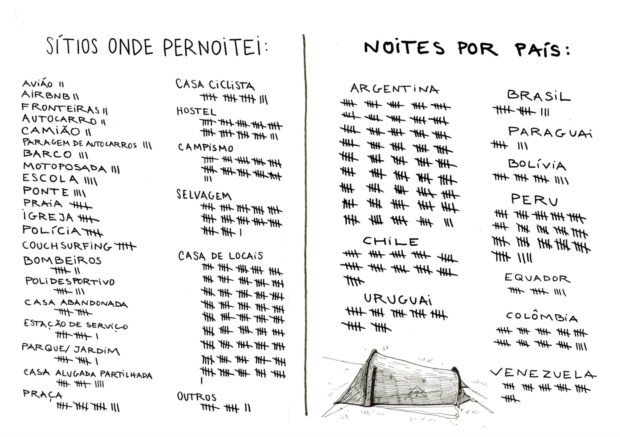 SÍTIOS ONDE PERNOITEI:
AVIÃO II
AIRBNB II
FRONTEIRAS II
AUTOCARRO II
CAMIÃO II
PARAGEM DE AUTOCARROS III
BARCO III
MOTOPOSADA III
ESCOLA IIII
PONTE IIII
PRAIA
IGREJA
POLÍCIA
COUCHSURFING
BOMBEIROS
POLIDESPORTIVO
CASA ABANDONADA
ESTAÇÃO DE SERVIÇO
PARQUE/JARDIM
CASA ALUGADA PARTILHADA
PRAÇA
CASA CICLISTA
HOSTEL
CAMPISMO
SELVAGEM
CASA DE LOCAIS
OUTROS
NOITES POR PAÍS:
ARGENTINA
CHILE
URUGUAI
BRASIL
PARAGUAI
BOLÍVIA
PERU
EQUADOR
COLÔMBIA
VENEZUELA